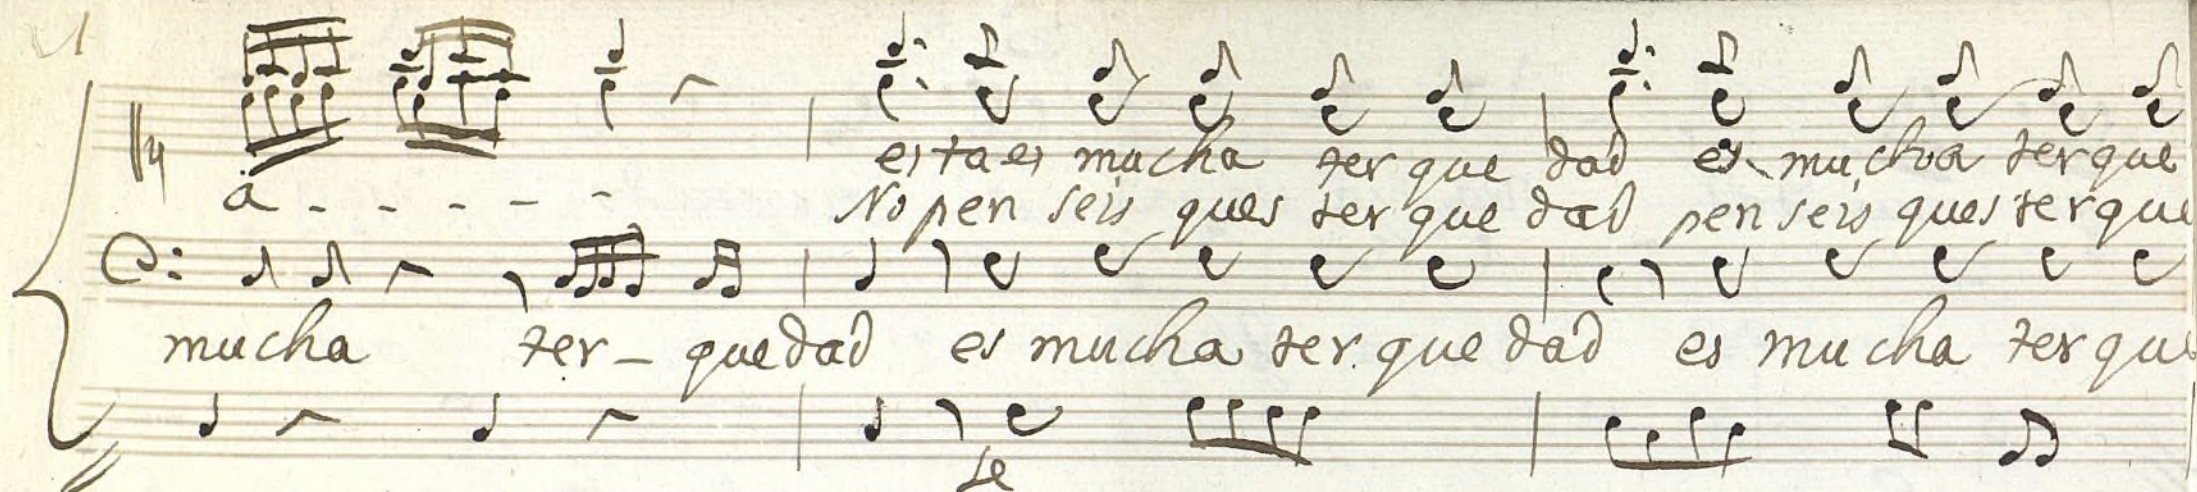 esta es mucha ter que dad es mucha ter que
a - - - - - No pen seis ques ter que dad pen seis ques ter que
mucha ter - que dad es mucha ter que dad es mu cha ter que